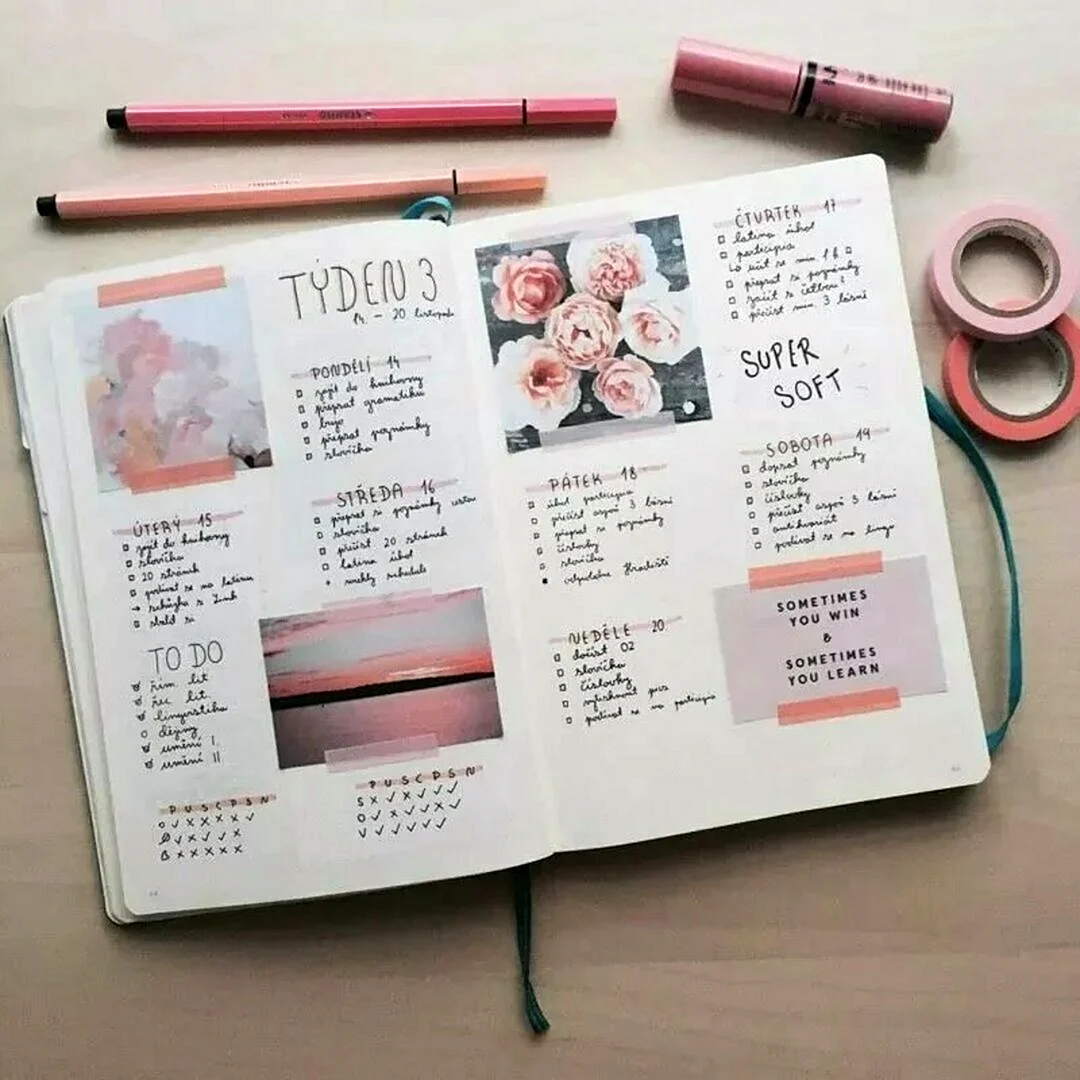 STABILO
TÝDEN 3
14. – 20 listopadu
PONDĚLÍ 14
zajít do knihovny
přepsat gramatiku
bujo
přepsat poznámky
slovíčka
ÚTERÝ 15
zajít do knihovny
slovíčka
20 stránek
podívat se na latinu
schůzka s
STŘEDA 16
přepsat si poznámky
slovíčka
přečíst 20 stránek
latina úkol
weekly schedule
TO DO
řím. lit
řec. lit.
lingvistika
dějiny
umění I.
umění II
P U S Č P S N
O ✓ x x x x ✓
Ø ✓ x ✓ ✓ x
B x x x x x
P U S Č P S N
S x ✓ x ✓ ✓ ✓
O ✓ ✓ ✓ x ✓ ✓
V ✓ ✓ ✓ ✓ ✓
ČTVRTEK 17
latina úkol
participia
učit se min. 1 h
přepsat si poznámky
začít s četbou?
přečíst min. 3 básně
SUPER
SOFT
PÁTEK 18
úkol participia
přečíst aspoň 3 básně
přepsat si poznámky
číslovky
slovíčka
odpoledne Hradiště
SOBOTA 19
dopsat poznámky
slovíčka
číslovky
přečíst aspoň 3 básně
antikvariát
podívat se na lingv.
NEDĚLE 20
dočíst O2
slovíčka
číslovky
vytisknout
podívat se na participia
SOMETIMES
YOU WIN
&
SOMETIMES
YOU LEARN